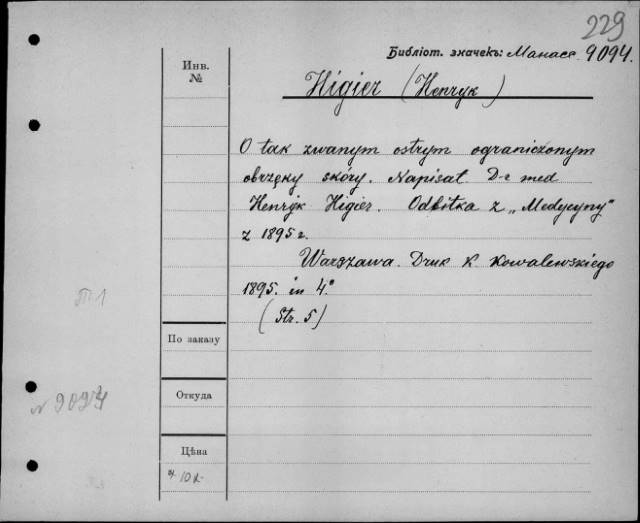 229
Библіот. значекъ: Манасс. 9094.
Инв.
№
Higier (Henryk)
O tak zwanym ostrym ograniczonym
obrzęky skóry. Napisał D-r med
Henryk Higier. Odbitka z „Medycyny"
z 1895 r.
Warszawa. Druk K. Kowalewskiego
1895. in 4.°
(Str. 5)
По заказу
Откуда
N 9094
Цѣна
10 к.